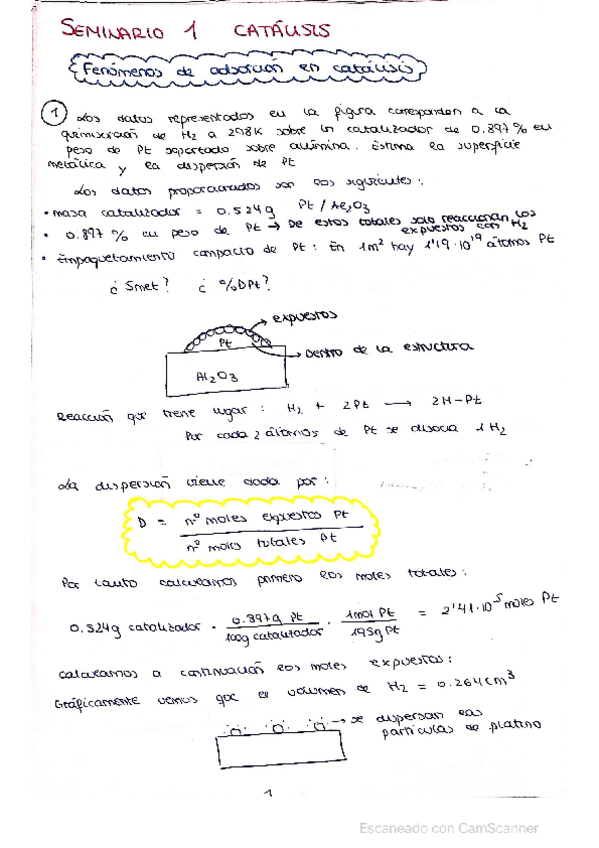 SEMINARIO 1 CATÁLISIS
Fenómenos de adsorción en catálisis
1 Los datos representados en la figura corresponden a la
quimisorción de H2 a 298K sobre un catalizador de 0.897% en
peso de Pt soportado sobre alúmina. Estima la superficie
metálica y la dispersión de Pt
Los datos proporcionados son los siguientes:
• masa catalizador = 0.524g Pt/Al2O3
• 0.897 % en peso de Pt → De estos totales solo reaccionan los
expuestos con H2
• Empaquetamiento compacto de Pt: En 1m² hay 1'19·10^19 átomos Pt
¿Smet? ¿%DPt?
expuestos
Pt
Dentro de la estructura
Al2O3
Reacción que tiene lugar: H2 + 2Pt → 2H-Pt
Por cada 2 átomos de Pt se disocia 1H2
La dispersión viene dada por:
D = nº moles expuestos Pt
nº moles totales Pt
Por tanto calculamos primero los moles totales:
0.524g catalizador · 0.897g Pt / 100g catalizador · 1mol Pt / 195g Pt = 2'41·10^-5 moles Pt
Calculamos a continuación los moles expuestos:
Gráficamente vemos que el volumen de H2 = 0.264cm³
→ se dispersan las
partículas de platino
1
Escaneado con CamScanner